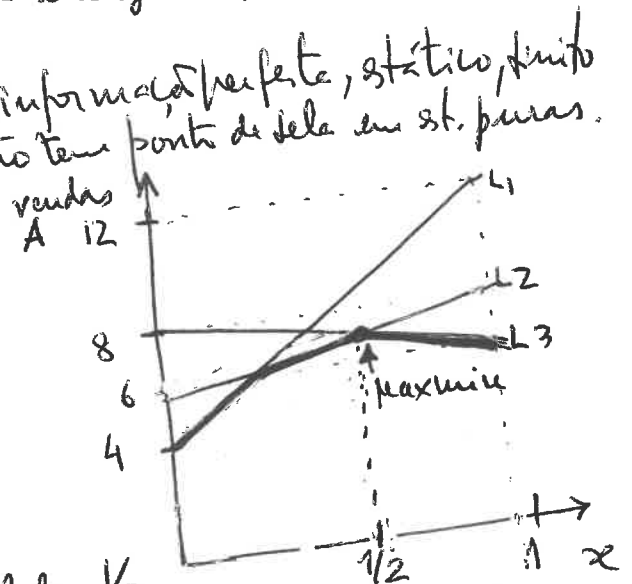 informação perfeita, estático, finito
não tem ponto de sela em est. puras.
vendas
A 12
L1
L2
8
L3
6
maxmin
4
1/2
1
x